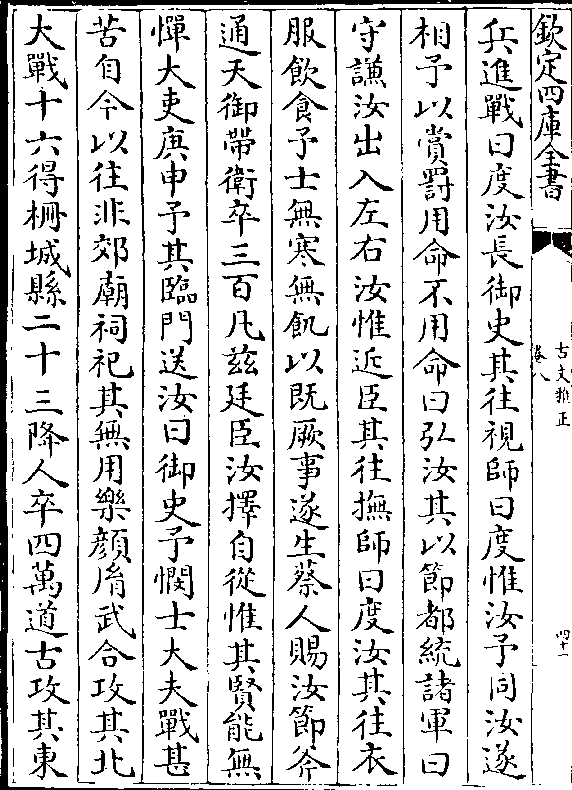 欽定四庫全書
古文雅正
卷八
四十一
兵進戰曰度汝長御史其往視師曰度惟汝予同汝遂
相予以賞罰用命不用命曰弘汝其以節都統諸軍曰
守謙汝出入左右汝惟近臣其往撫師曰度汝其往衣
服飲食予士無寒無飢以既厥事遂生蔡人賜汝節斧
通天御帶衛卒三百凡茲廷臣汝擇自從惟其賢能無
憚大吏庚申予其臨門送汝曰御史予憫士大夫戰甚
苦自今以往非郊廟祠祀其無用樂顏胤武合攻其北
大戰十六得柵城縣二十三降人卒四萬道古攻其東